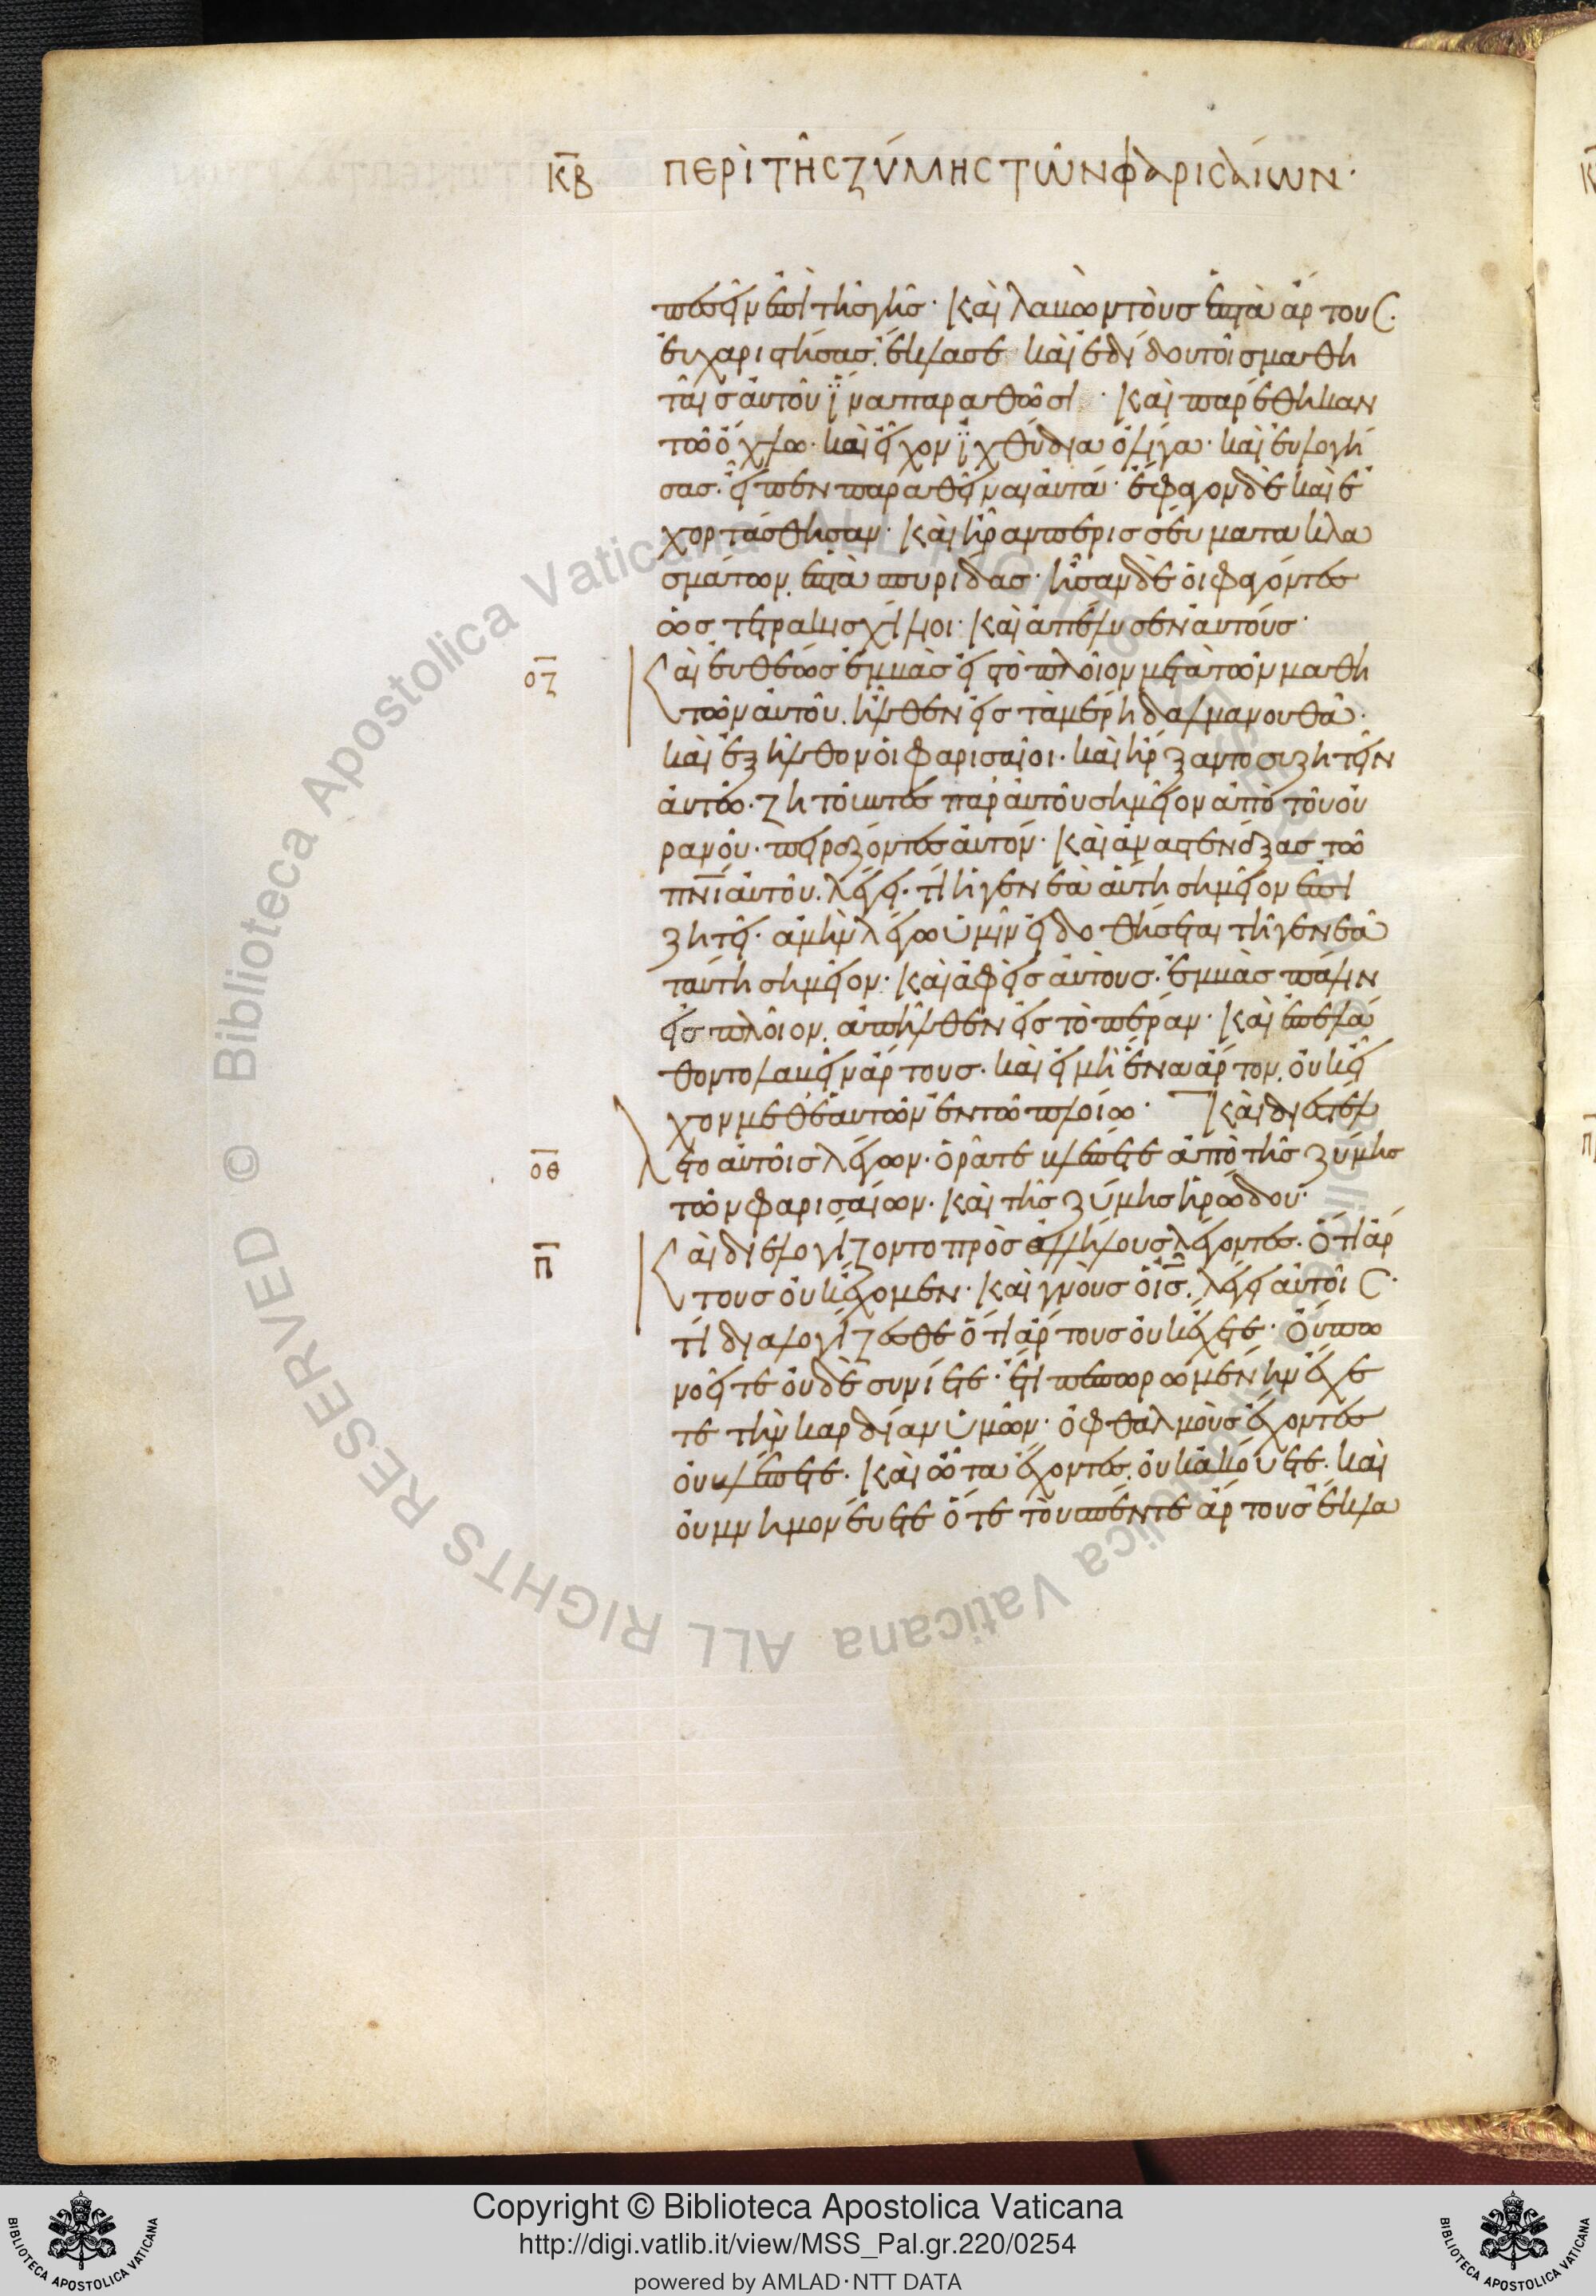 κ̅β̅ ΠΕΡῚ ΤΗ͂Σ ΖΎΜΗΣ ΤΩ͂Ν ΦΑΡΙΣΑΊΩΝ·
πεσεῖν ἐπὶ τῆς γῆς· Καὶ λαβὼν τοὺς ἑπτὰ ἄρτους·
εὐχαριστήσας. ἔκλασε καὶ ἐδίδου τοῖς μαθη
ταῖς αὐτοῦ ἵνα παραθῶσι· Καὶ παρέθηκαν
τῶ ὄχλω. καὶ εἶχον ἰχθύδια ὀλίγα· καὶ εὐλογή
σας. εἶπεν παραθεῖναι αὐτά· ἔφαγον δὲ καὶ ἐ
χορτάσθησαν· Καὶ ἦραν περισσεύματα κλα
σμάτων. ἑπτὰ σπυρίδας· ἦσαν δὲ οἱ φαγόντες
ὡς τετρακισχίλιοι· Καὶ ἀπέλυσεν αὐτούς·
ο̅ζ̅ Καὶ εὐθέως ἐμβὰς εἰς τὸ πλοῖον μετὰ τῶν μαθη
τῶν αὐτοῦ. ἦλθεν εἰς τὰ μέρη δαλμανουθᾶ·
καὶ ἐξῆλθον οἱ φαρισαῖοι· καὶ ἤρξαντο συζητεῖν
αὐτῶ. ζητοῦντες παρ' αὐτοῦ σημεῖον ἀπὸ τοῦ οὐ
ρανοῦ· πειράζοντες αὐτόν· Καὶ ἀναστενάξας τῶ
πν̅ι̅ αὐτοῦ. λέγει. τί ἡ γενεὰ αὕτη σημεῖον ἐπι
ζητεῖ· ἀμὴν λέγω ὑμῖν εἰ δοθήσεται τῆ γενεᾶ
ταύτη σημεῖον· Καὶ ἀφεὶς αὐτοὺς. ἐμβὰς πάλιν
εἰς πλοῖον. ἀπῆλθεν εἰς τὸ πέραν· Καὶ ἐπελά
θοντο λαβεῖν ἄρτους. καὶ εἰ μὴ ἕνα ἄρτον. οὐκ εἶ
χον μεθ' ἑαυτῶν ἐν τῶ πλοίω· Καὶ διεστέλ
ο̅θ̅ λετο αὐτοῖς λέγων. ὁρᾶτε βλέπετε ἀπὸ τῆς ζύμης
τῶν φαρισαίων. καὶ τῆς ζύμης ἡρώδου·
π̅ Καὶ διελογίζοντο πρὸς ἀλλήλους λέγοντες. ὅτι ἄρ
τους οὐκ ἔχομεν· Καὶ γνοὺς ὁ ι̅ς̅. λέγει αὐτοῖς·
τί διαλογίζεσθε ὅτι ἄρτους οὐκ ἔχετε· Οὔπω
νοεῖτε οὐδὲ συνίετε· ἔτι πεπωρωμένην ἔχε
τε τὴν καρδίαν ὑμῶν· ὀφθαλμοὺς ἔχοντες
οὐ βλέπετε· Καὶ ὦτα ἔχοντες. οὐκ ἀκούετε. καὶ
οὐ μνημονεύετε ὅτε τοὺς πέντε ἄρτους ἔκλα
Copyright © Biblioteca Apostolica Vaticana
http://digi.vatlib.it/view/MSS_Pal.gr.220/0254
powered by AMLAD·NTT DATA
© Biblioteca Apostolica Vaticana ALL RIGHTS RESERVED
BIBLIOTECA APOSTOLICA VATICANA
BIBLIOTECA APOSTOLICA VATICANA